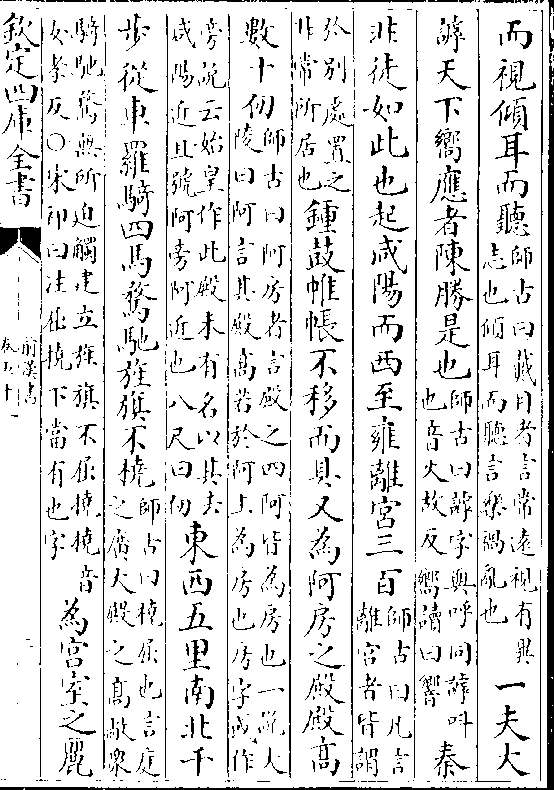 而視傾耳而聽師古曰戴目者言常遠視有異志也傾耳而聽言樂禍亂也一夫大
謼天下嚮應者陳勝是也師古曰謼字與呼同謼叫也音火故反嚮讀曰響秦
非徒如此也起咸陽而西至雍離宮三百師古曰凡言離宮者皆謂
於別處置之非常所居也鍾鼓帷帳不移而具又為阿房之殿殿高
數十仞師古曰阿房者言殿之四阿皆為房也一說大陵曰阿言其殿高若於阿上為房也房字或作
旁說云始皇作此殿未有名以其去咸陽近且號阿旁阿近也八尺曰仞東西五里南北千
步從車羅騎四馬騖馳旌旗不橈師古曰橈屈也言庭之廣大殿之高敞衆
騎馳騖無所迫觸建立旌旗不屈橈橈音女孝反○宋祁曰注屈橈下當有也字為宮室之麗
欽定四庫全書
前漢書
卷五十